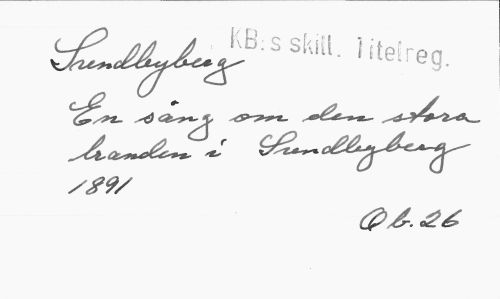 Sundbyberg
KB:s skill. Titelreg.
En sång om den stora
branden i Sundbyberg
1891
Qb.26